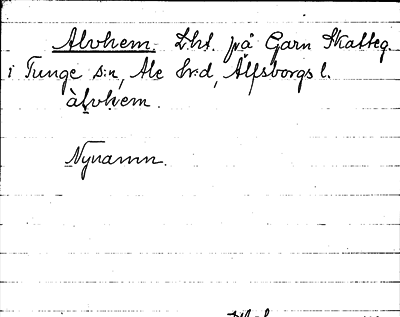 Alvhem. Lht. på Garn Skatteg.
i Tunge s:n, Ale hrd, Älfsborgs l.
àlvhem.
Nynamn.